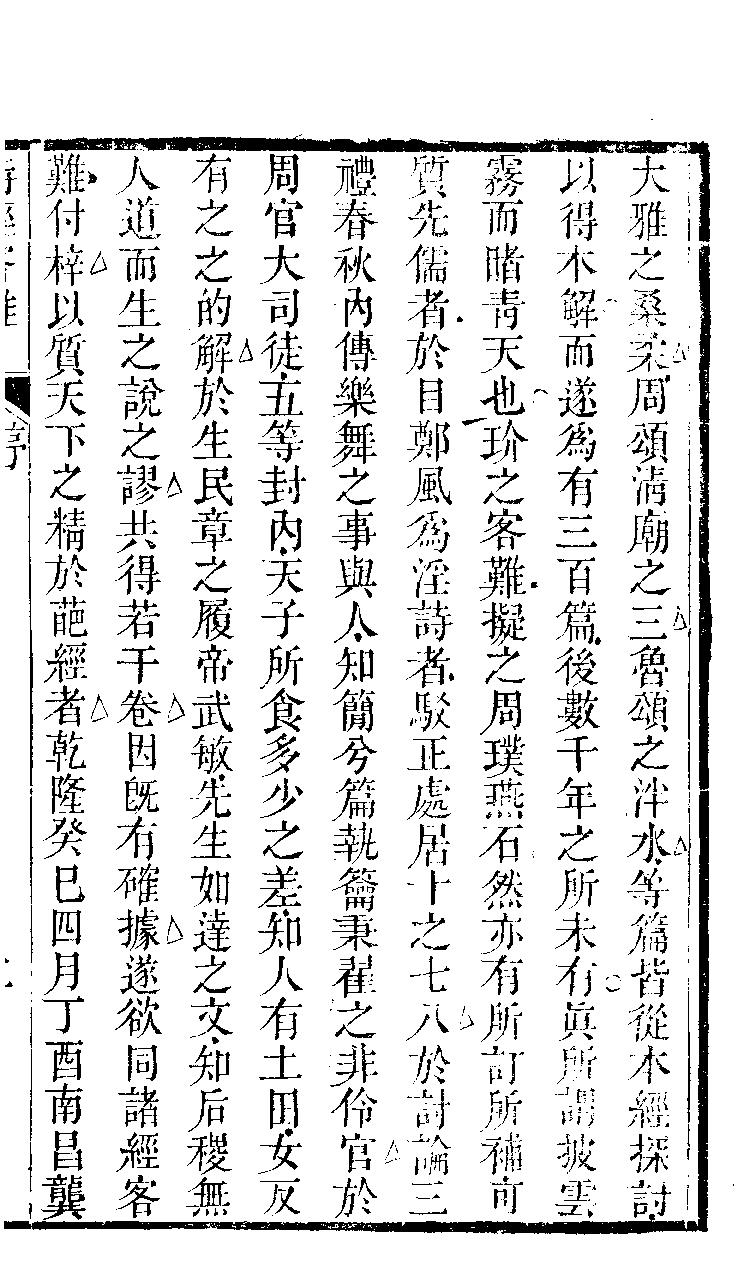 大雅之桑柔周頌淸廟之三魯頌之泮水等篇皆從本經探討
以得本解而遂爲有三百篇後數千年之所未有眞所謂披雲
霧而睹靑天也玠之客難擬之周璞燕石然亦有所訂所補可
質先儒者於目鄭風爲淫詩者駁正處居十之七八於討論三
禮春秋內傳樂舞之事與人知簡兮篇執籥秉翟之非伶官於
周官大司徒五等封內天子所食多少之差知人有土田女反
有之之的解於生民章之履帝武敏先生如達之文知后稷無
人道而生之說之謬共得若干卷因旣有確據遂欲同諸經客
難付梓以質天下之精於葩經者乾隆癸巳四月丁酉南昌龔
詩經客難
序